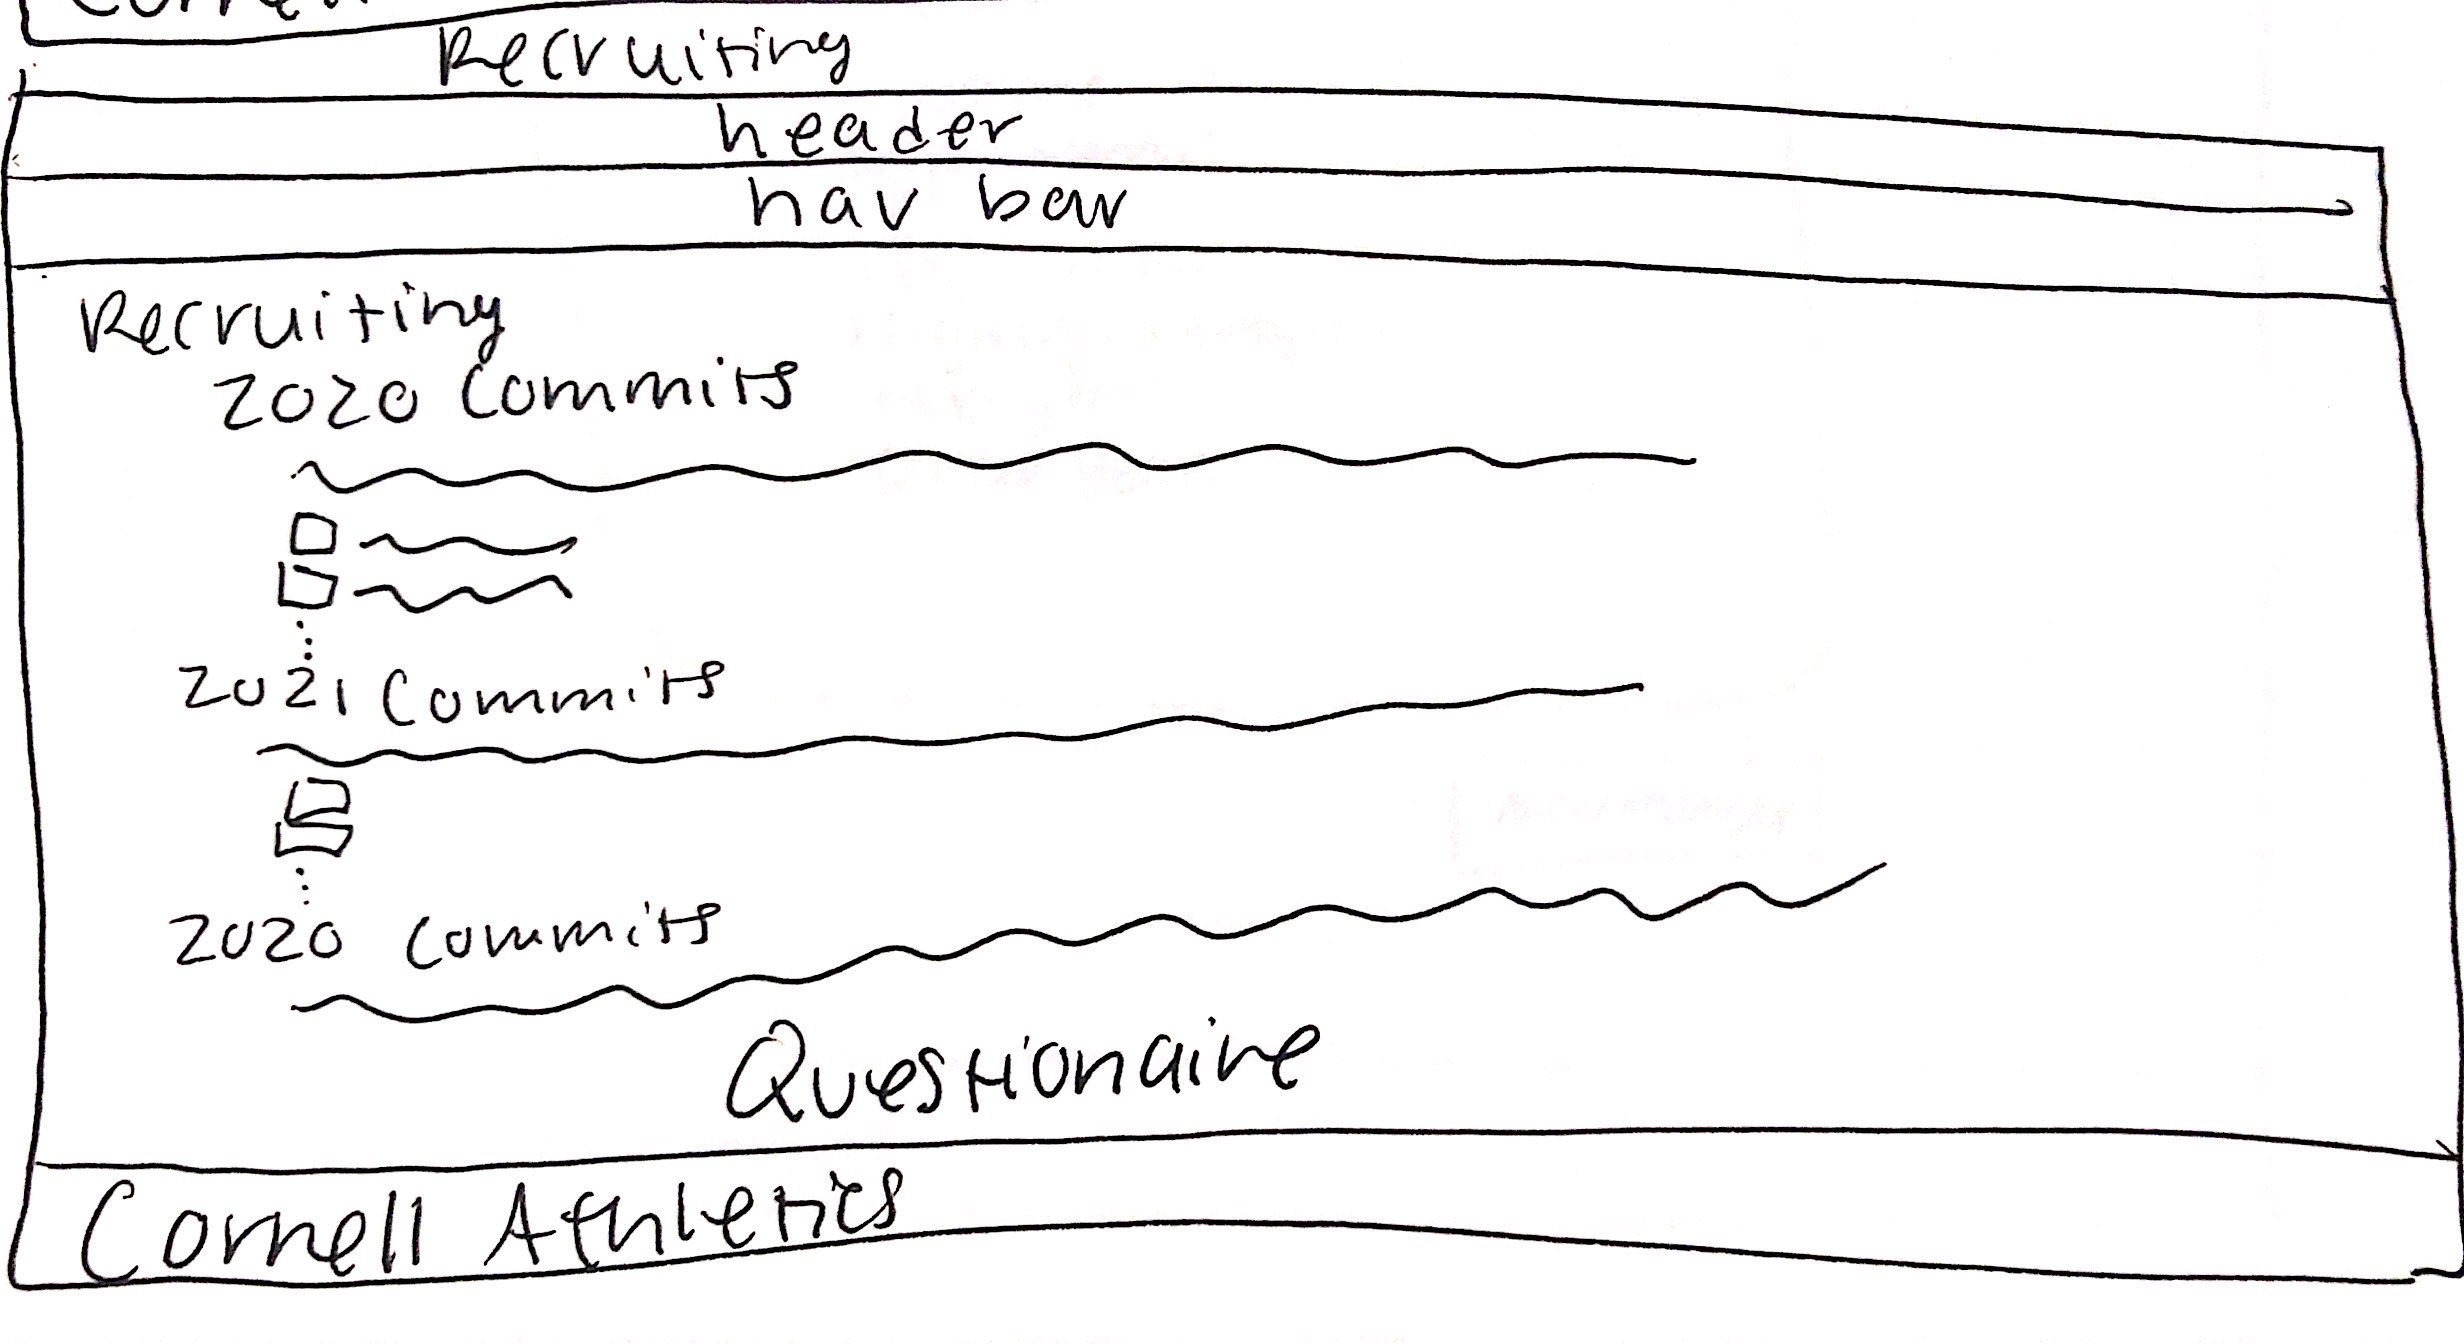 Recruiting
header
nav bar
Recruiting
2020 Commits
2021 Commits
2020 Commits
Questionaire
Cornell Athletics